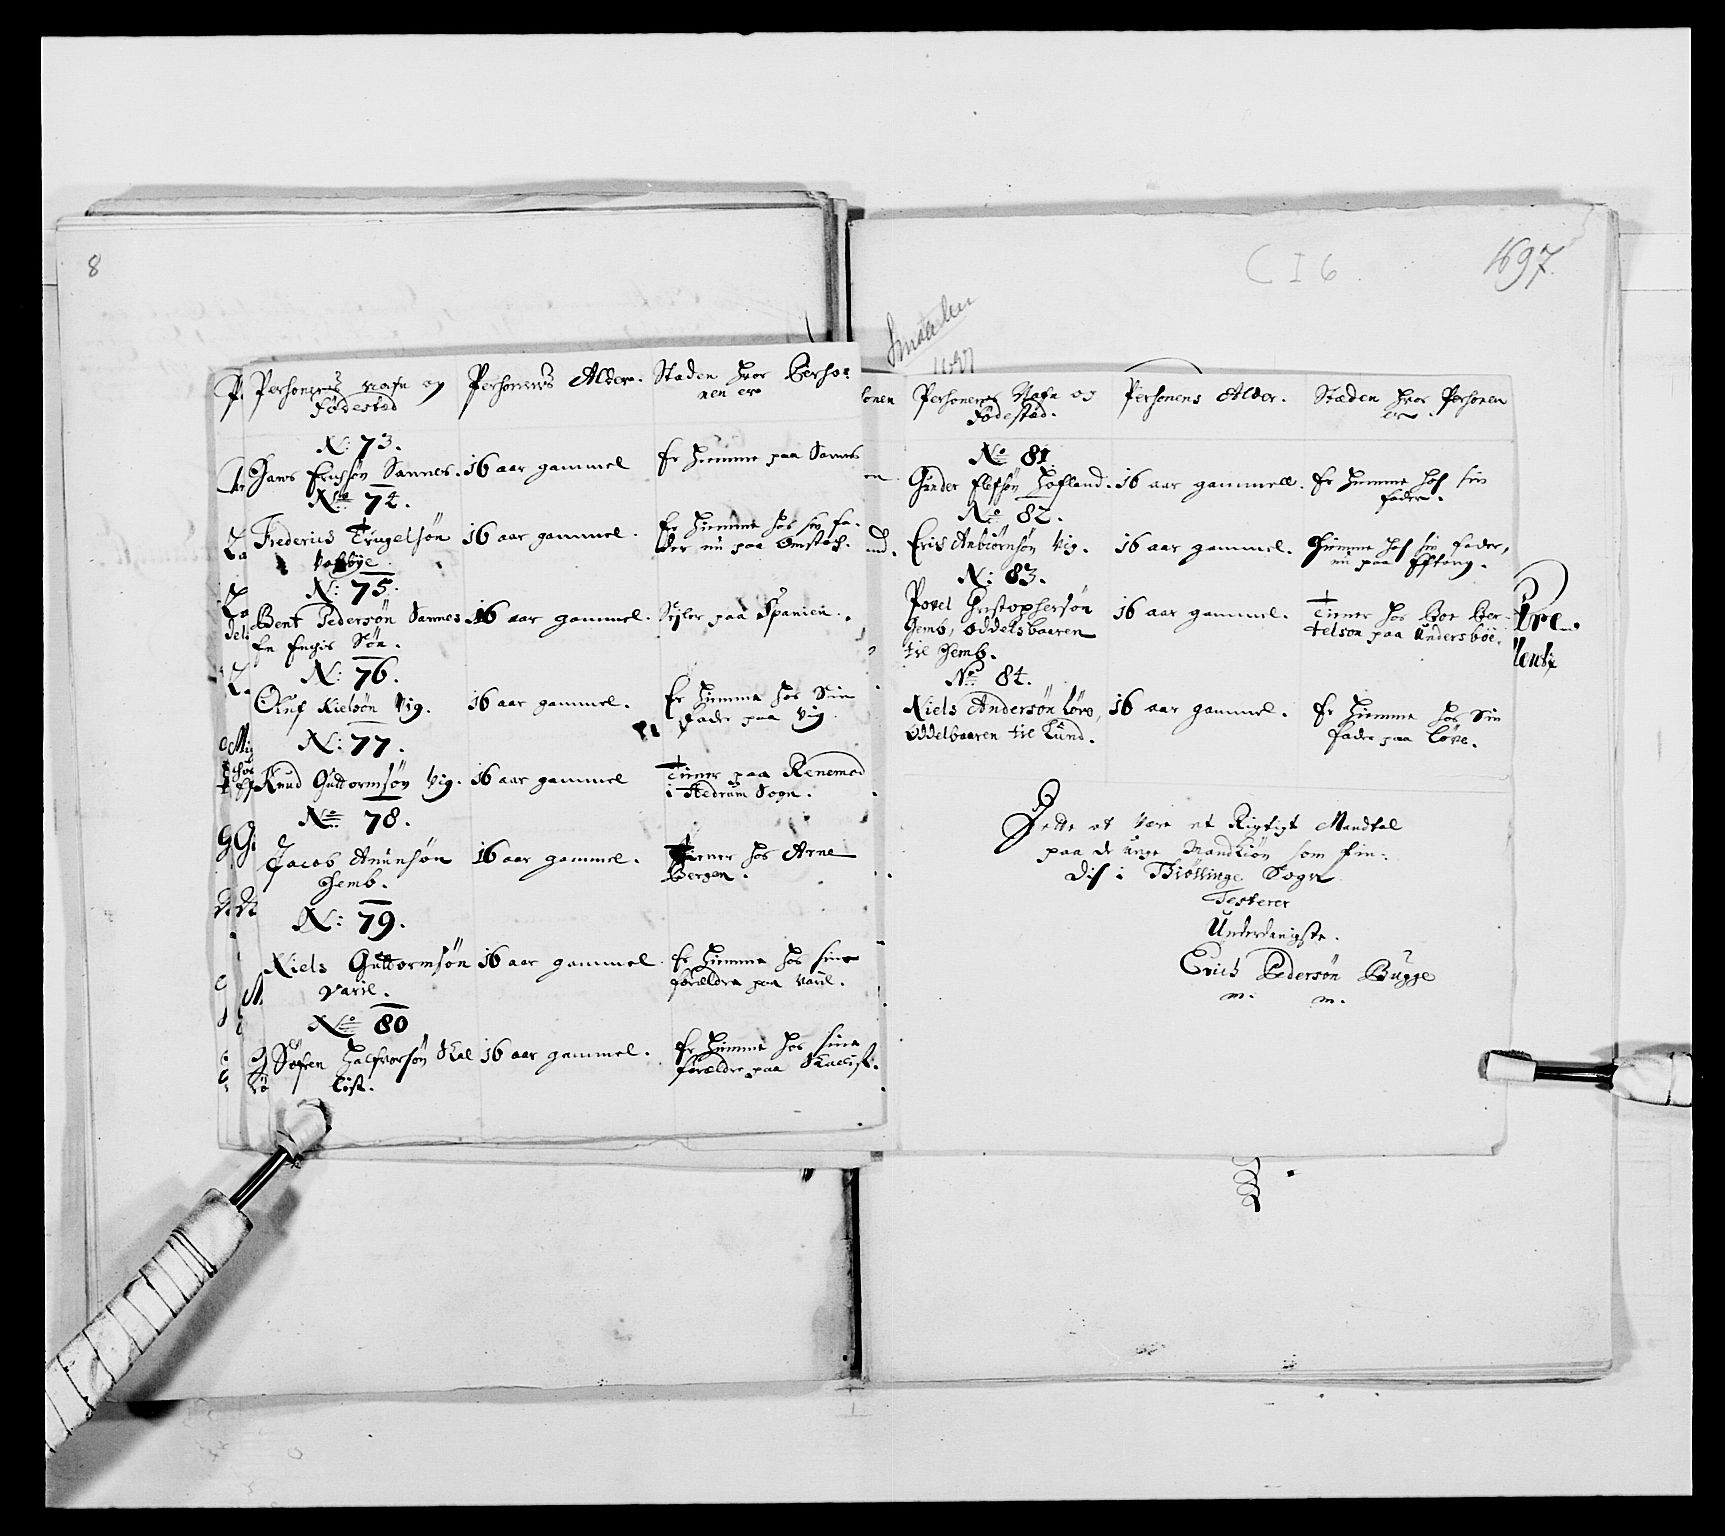 8
C I 6
1697
Smaalen
1697
Personens nafn og
Fødestad
Personens Alder.
Staden hvor Perso-
nen er
N: 73.
Hans Erichsøn Sannes.
16 aar gammel
Er hiemme paa Sannes
No 74.
Frederich Trugelsøn
16 aar gammel.
Er hiemme hos sin fa-
der nu paa Omstad.
N: 75.
Bent Pedersøn Sannes
16 aar gammel.
Seyler paa Spanien.
En Enchis Søn.
N: 76.
Oluf Nielsøn Vig.
16 aar gammel.
Er hiemme hos Sin
Fader paa Vig
N: 77.
Knud Guttormsøn Vig.
16 aar gammel
Tiener paa Renemod
i Hedrum Sogn.
No 78.
Jacob Anunsøn
Hemb.
16 aar gammel.
Tiener hos Arne
Bergen.
N: 79.
Niels Guttormsøn
Varil.
16 aar gammel
Er hiemme hos sine
forældre paa Varil.
No 80
Søfren Halfvorsøn Skal
list.
16 aar gammel.
Er hiemme hos sine
forældre paa Skallist.
Personens Nafn og
Fødestad.
Personens Alder.
Staden hvor Personen
er.
No 81
Gunder Elefsøn Hofland.
16 aar gammell.
Er hiemme hos sin
fader.
No 82.
Erich Anbiørnsøn Vig.
16 aar gammel.
Hiemme hos sin fader,
nu paa Eftang.
N: 83.
Povel Christophersøn
Hemb, Oddelsbaaren
til Hemb.
16 aar gammel.
Tiener hos Boe Ber-
telson paa Andersbøe.
No 84.
Niels Andersøn Løve,
Oddelbaaren til Lund.
16 aar gammel.
Er hiemme hos Sin
fader paa Løve.
Dette at være et Rigtigt Mandtal
paa de unge Mandkiøn som fin-
dis i Thiøllinge Sogn
Testerer
Underdanigste.
Erich Pedersøn Bugge
m. m.